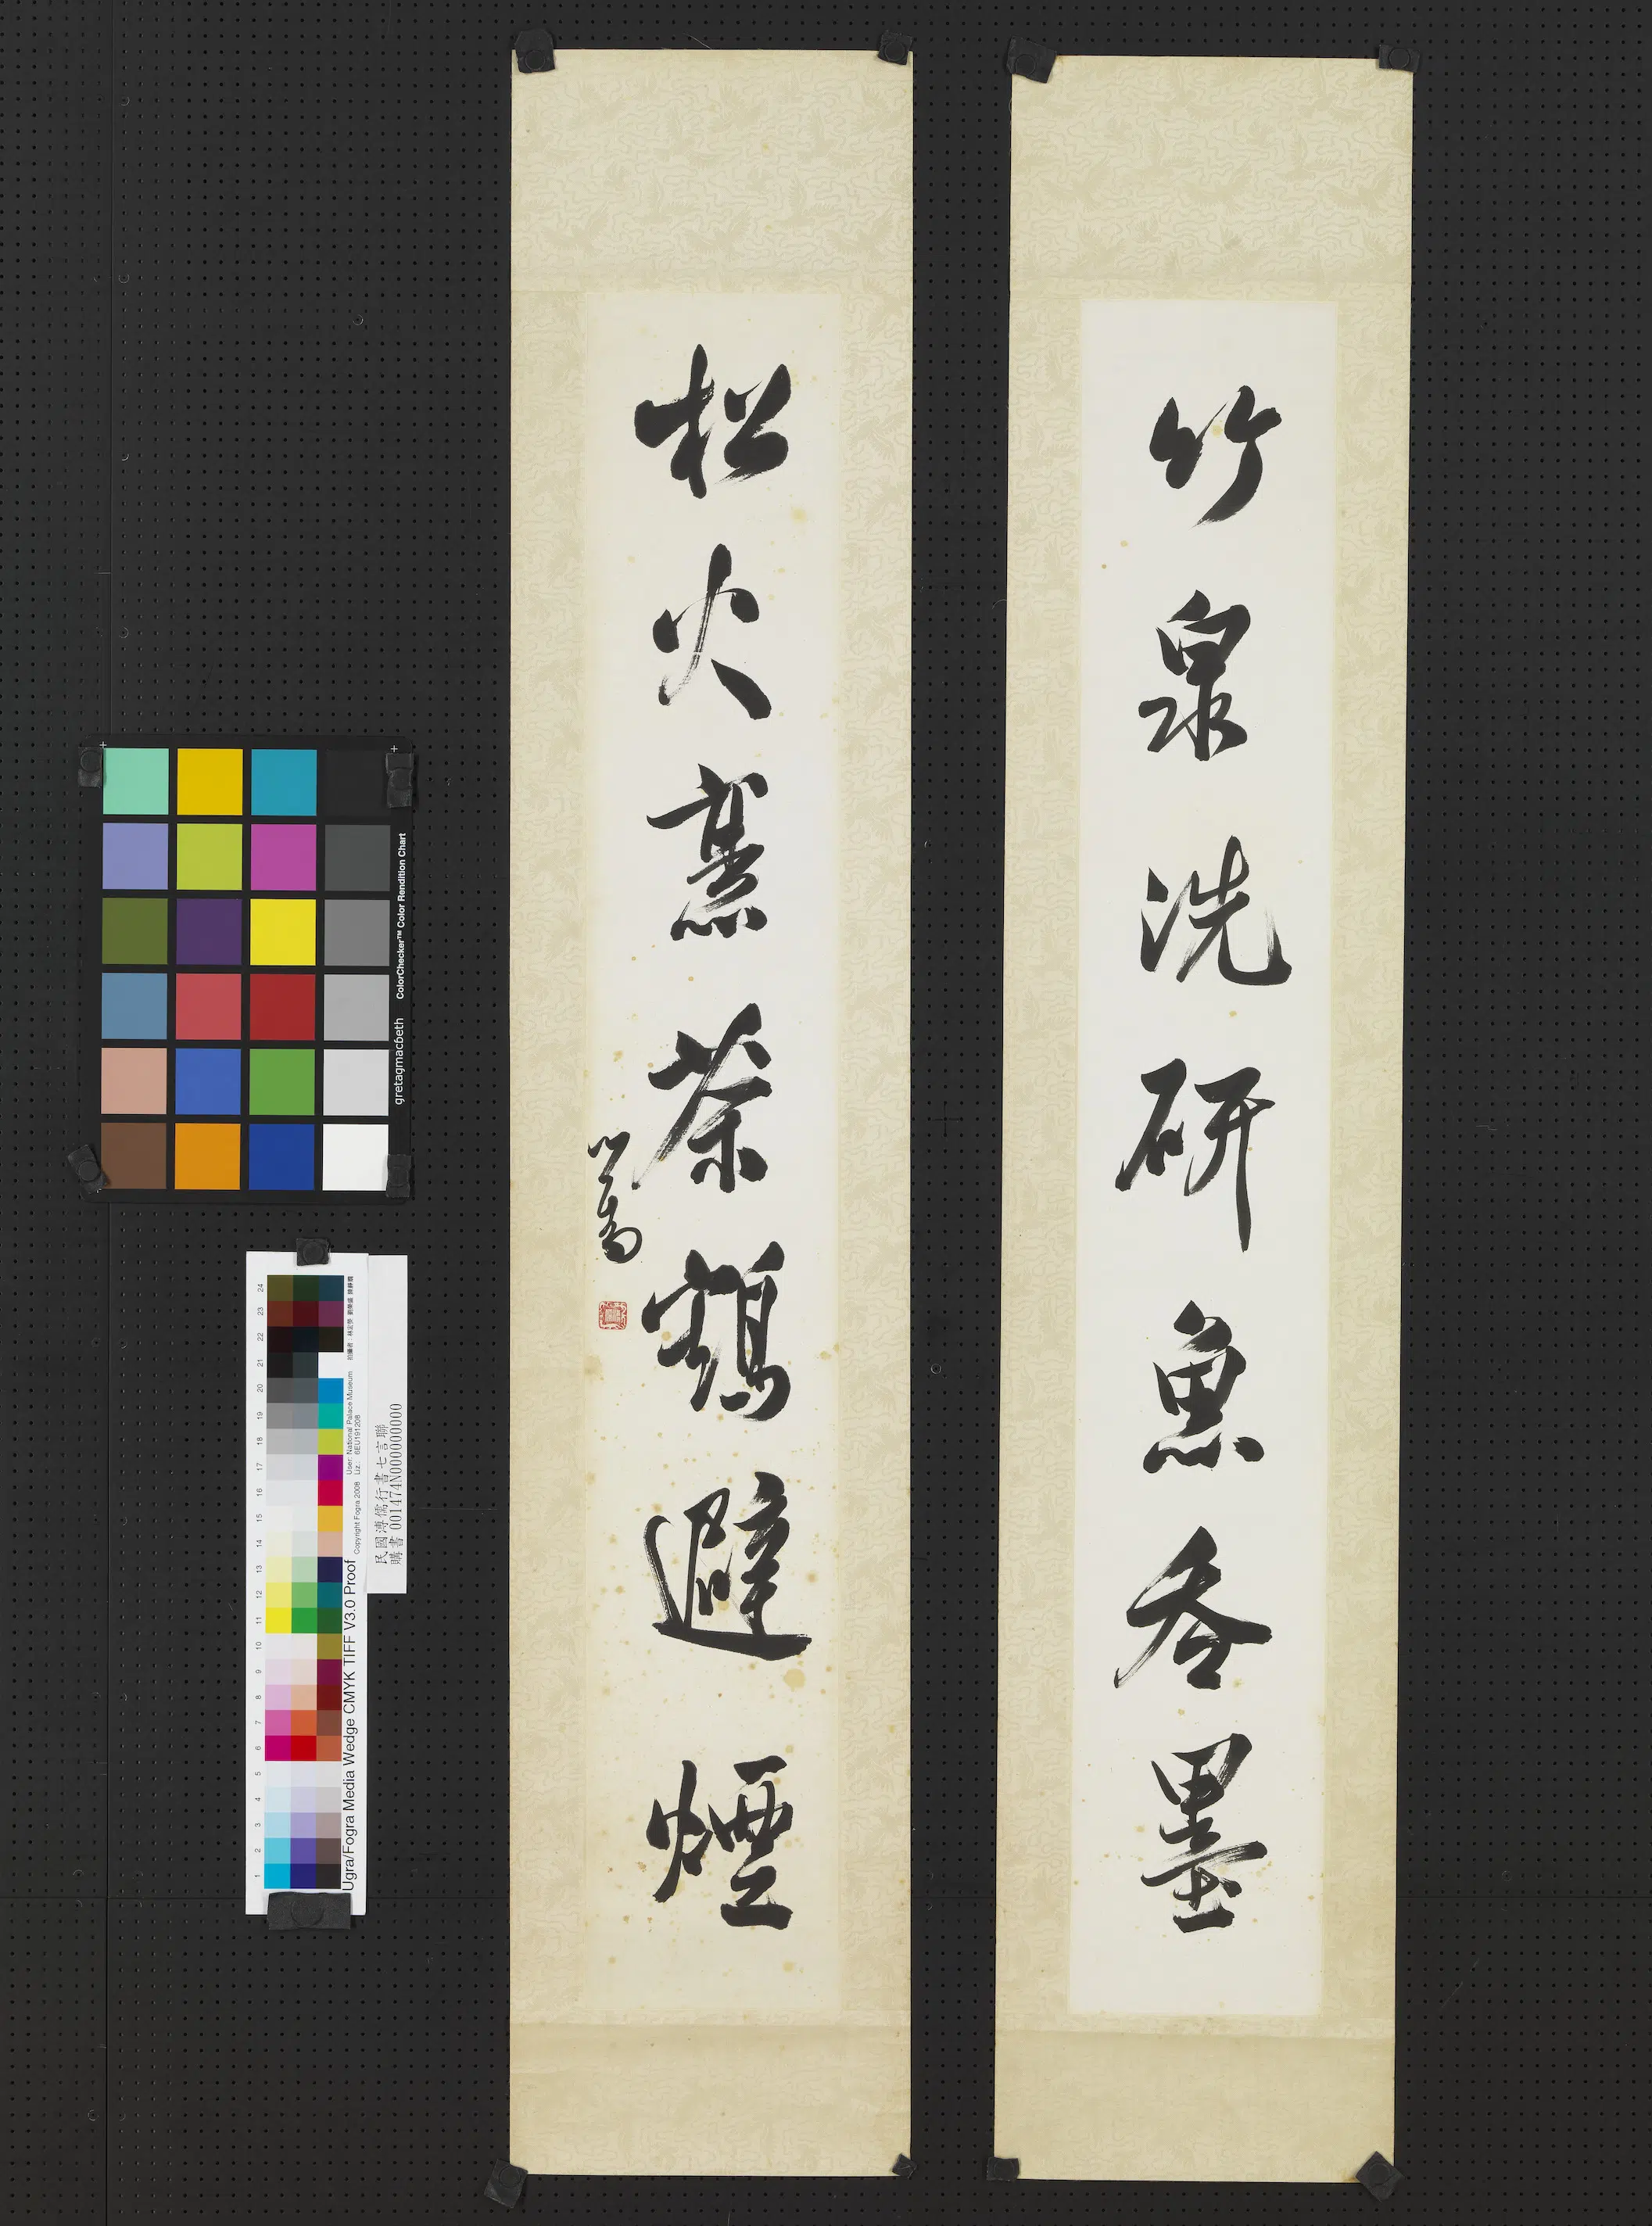 竹泉洗研魚吞墨
松火烹茶鶴避煙
心畬
ColorChecker™ Color Rendition Chart
gretagmacbeth
民國溥儒行書七言聯
購書 001474N000000000
Ugra/Fogra Media Wedge CMYK TIFF V3.0 Proof
Copyright Fogra 2008
User: National Palace Museum
Liz.: 6EU191208
1 2 3 4 5 6 7 8 9 10 11 12 13 14 15 16 17 18 19 20 21 22 23 24